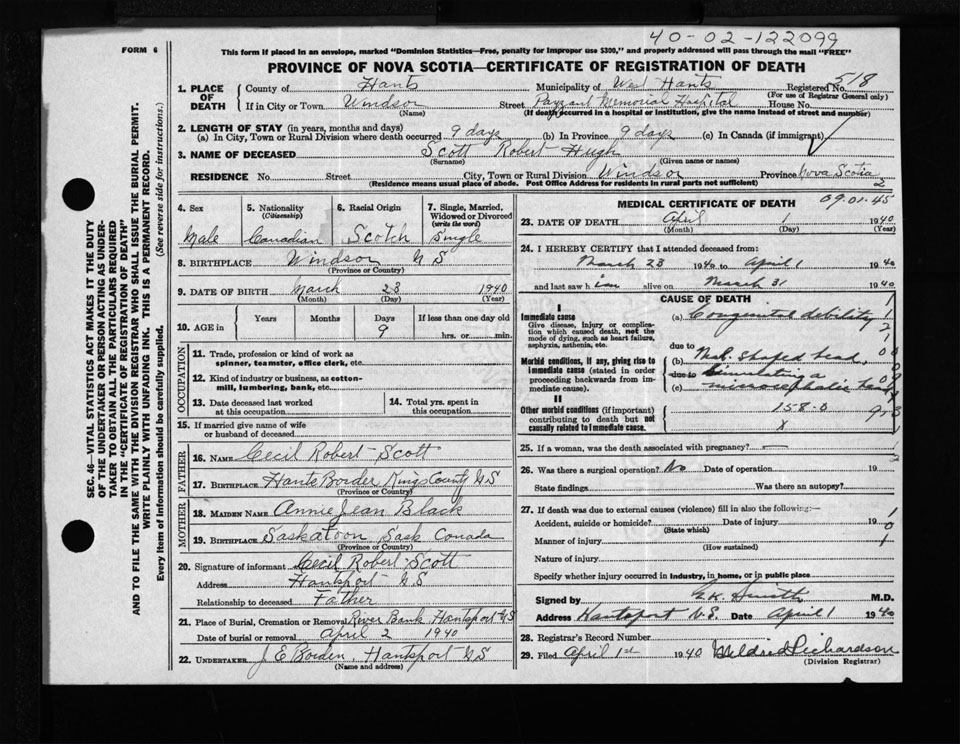 40-02-122099
FORM 6
This form if placed in an envelope, marked "Dominion Statistics—Free, penalty for improper use $300," and properly addressed will pass through the mail "FREE"
PROVINCE OF NOVA SCOTIA—CERTIFICATE OF REGISTRATION OF DEATH
1. PLACE OF DEATH
County of Hants Municipality of West Hants Registered No. 518
(For use of Registrar General only)
If in City or Town Windsor Street Payzant Memorial Hospital House No.
(Name) (If death occurred in a hospital or institution, give the name instead of street and number)
2. LENGTH OF STAY (in years, months and days)
(a) In City, Town or Rural Division where death occurred 9 days (b) In Province 9 days (c) In Canada (if immigrant)
3. NAME OF DECEASED Scott Robert Hugh
(Surname) (Given name or names)
RESIDENCE No. Street City, Town or Rural Division Windsor Province Nova Scotia
(Residence means usual place of abode. Post Office Address for residents in rural parts not sufficient)
2
4. Sex 5. Nationality (Citizenship) 6. Racial Origin 7. Single, Married, Widowed or Divorced (write the word)
Male Canadian Scotch Single
8. BIRTHPLACE Windsor N S
(Province or Country)
9. DATE OF BIRTH March 23 1940
(Month) (Day) (Year)
10. AGE in Years Months Days If less than one day old
9 hrs. or min.
OCCUPATION
11. Trade, profession or kind of work as spinner, teamster, office clerk, etc.
12. Kind of industry or business, as cotton-mill, lumbering, bank, etc.
13. Date deceased last worked at this occupation
14. Total yrs. spent in this occupation
15. If married give name of wife or husband of deceased
FATHER
16. NAME Cecil Robert Scott
17. BIRTHPLACE Hants Border Kings County N S
(Province or Country)
MOTHER
18. MAIDEN NAME Annie Jean Black
19. BIRTHPLACE Saskatoon Sask Canada
(Province or Country)
20. Signature of informant Cecil Robert Scott
Address Hantsport N S
Relationship to deceased Father
21. Place of Burial, Cremation or Removal River Bank Hantsport N S
Date of burial or removal April 2 1940
22. UNDERTAKER J E Borden, Hantsport N S
(Name and address)
MEDICAL CERTIFICATE OF DEATH 09.01.45
23. DATE OF DEATH April 1 1940
(Month) (Day) (Year)
24. I HEREBY CERTIFY that I attended deceased from:
March 23 1940 to April 1 1940
and last saw him alive on March 31 1940
CAUSE OF DEATH
I
Immediate cause
Give disease, injury or complication which caused death, not the mode of dying, such as heart failure, asphyxia, asthenia, etc.
(a) Congenital debility
due to
Morbid conditions, if any, giving rise to immediate cause (stated in order proceeding backwards from immediate cause).
(b) Mal. Shaped head
due to Simulating a
(c) microcephalic
II
Other morbid conditions (if important) contributing to death but not causally related to immediate cause.
158-0
X
25. If a woman, was the death associated with pregnancy?
26. Was there a surgical operation? No Date of operation 19
State findings Was there an autopsy?
27. If death was due to external causes (violence) fill in also the following:—
Accident, suicide or homicide? Date of injury 19
(State which)
Manner of injury
(How sustained)
Nature of injury
Specify whether injury occurred in industry, in home, or in public place
Signed by G.K. Smith M.D.
Address Hantsport N.S. Date April 1 1940
28. Registrar's Record Number
29. Filed April 1st 1940 Mildred Richardson
(Division Registrar)
SEC. 46—VITAL STATISTICS ACT MAKES IT THE DUTY
OF THE UNDERTAKER OR PERSON ACTING AS UNDER-
TAKER TO OBTAIN ALL THE PARTICULARS REQUIRED
IN THE "CERTIFICATE OF REGISTRATION OF DEATH"
AND TO FILE THE SAME WITH THE DIVISION REGISTRAR WHO SHALL ISSUE THE BURIAL PERMIT.
WRITE PLAINLY WITH UNFADING INK. THIS IS A PERMANENT RECORD.
Every item of information should be carefully supplied. (See reverse side for instructions.)